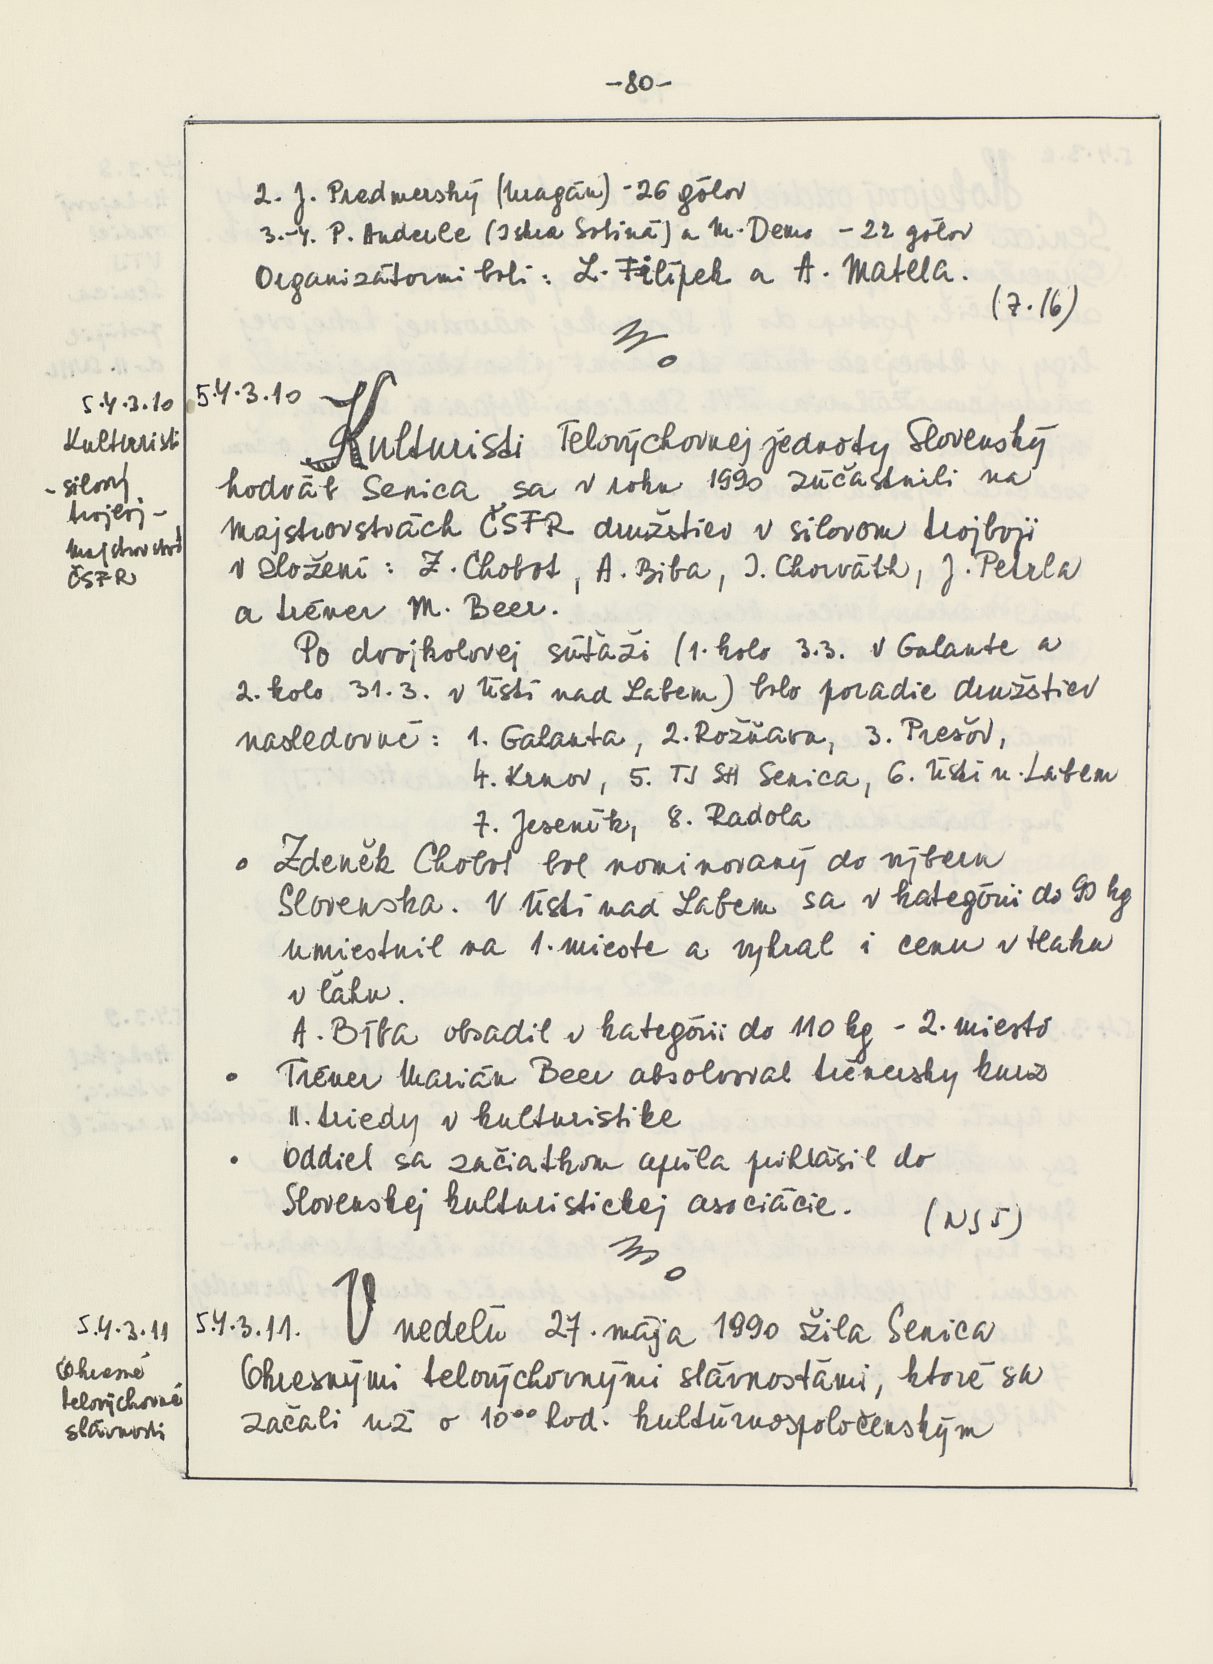 -80-
2. J. Predmerský (Uragán) - 26 gólov
3.-4. P. Anderle (Iskra Sotiná) a M. Demo - 22 gólov
Organizátormi boli: L. Filípek a A. Matella.
(7.16)
5.4.3.10
Kulturisti
- silový
trojboj -
majstrovstvá
ČSFR
5.4.3.10
Kulturisti Telovýchovnej jednoty Slovenský
hodváb Senica sa v roku 1990 zúčastnili na
majstrovstvách ČSFR družstiev v silovom trojboji
v zložení: Z. Chobot, A. Biba, I. Chorváth, J. Petrla
a tréner M. Beer.
Po dvojkolovej súťaži (1. kolo 3.3. v Galante a
2. kolo 31.3. v Ústí nad Labem) bolo poradie družstiev
nasledovné: 1. Galanta, 2. Rožňava, 3. Prešov,
4. Krnov, 5. TJ SH Senica, 6. Ústí n. Labem
7. Jeseník, 8. Radola
• Zdeněk Chobot bol nominovaný do výberu
Slovenska. V Ústí nad Labem sa v kategórii do 90 kg
umiestnil na 1. mieste a vyhral i cenu v tlaku
v ľahu.
A. Bíba obsadil v kategórii do 110 kg - 2. miesto
• Tréner Marián Beer absolvoval trénersky kurz
II. triedy v kulturistike
• Oddiel sa začiatkom apríla prihlásil do
Slovenskej kulturistickej asociácie.
(NS 5)
5.4.3.11
Okresné
telovýchovné
slávnosti
5.4.3.11. V nedeľu 27. mája 1990 žila Senica
Okresnými telovýchovnými slávnosťami, ktoré sa
začali už o 10⁰⁰ hod. kultúrnospoločenským